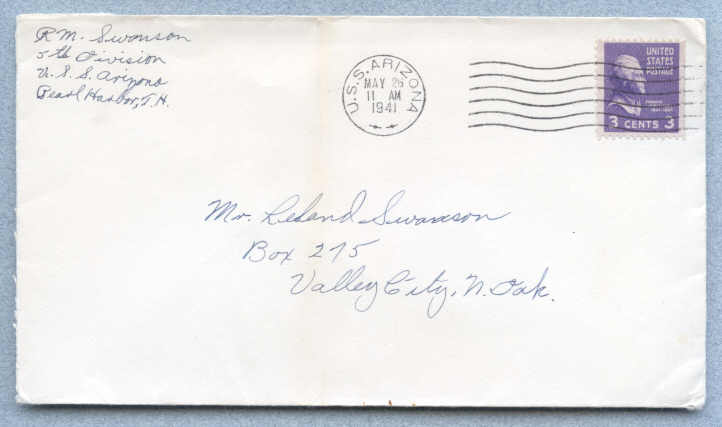 R.M. Swanson
5th Division
U.S.S. Arizona
Pearl Harbor, T.H.
U.S.S. ARIZONA
MAY 26
11 AM
1941
UNITED
STATES
POSTAGE
3 CENTS 3
Mr. Leland Swanson
Box 275
Valley City, N. Dak.